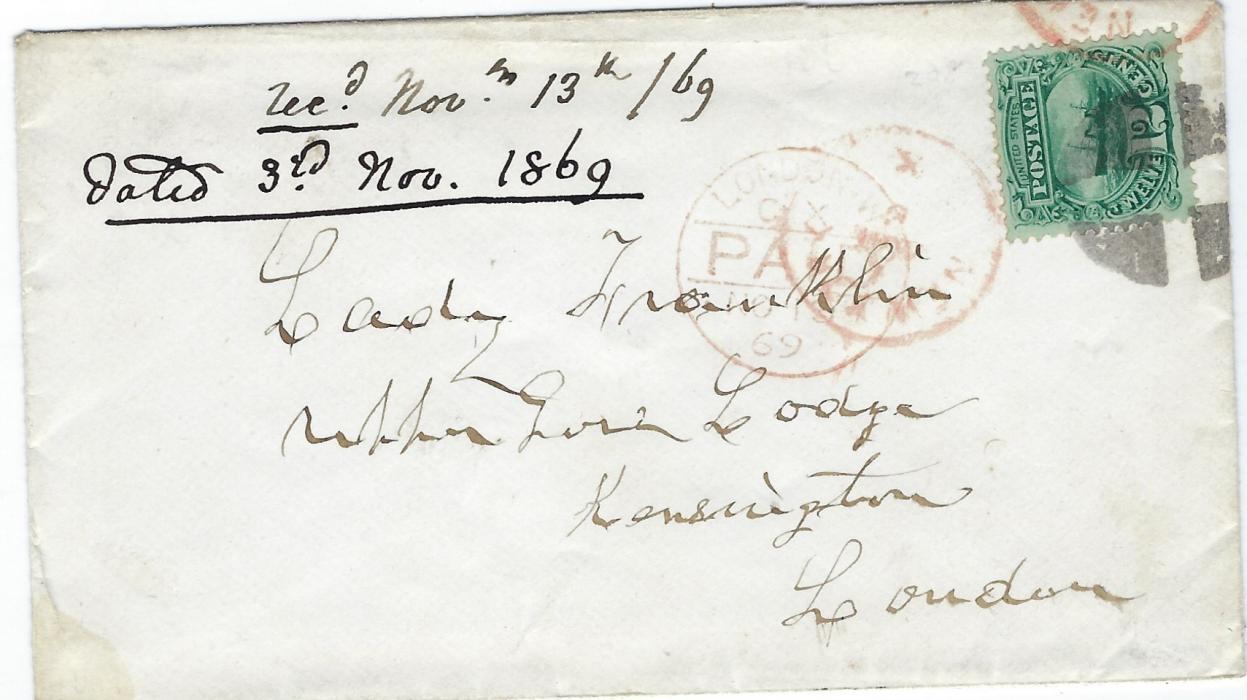 recd. Novm 13th /69
Dated 3rd Nov. 1869
Lady Franklin
upper Gore Lodge
Kensington
London
UNITED STATES
POSTAGE
12
TWELVE CENTS
LONDON
PAID
69